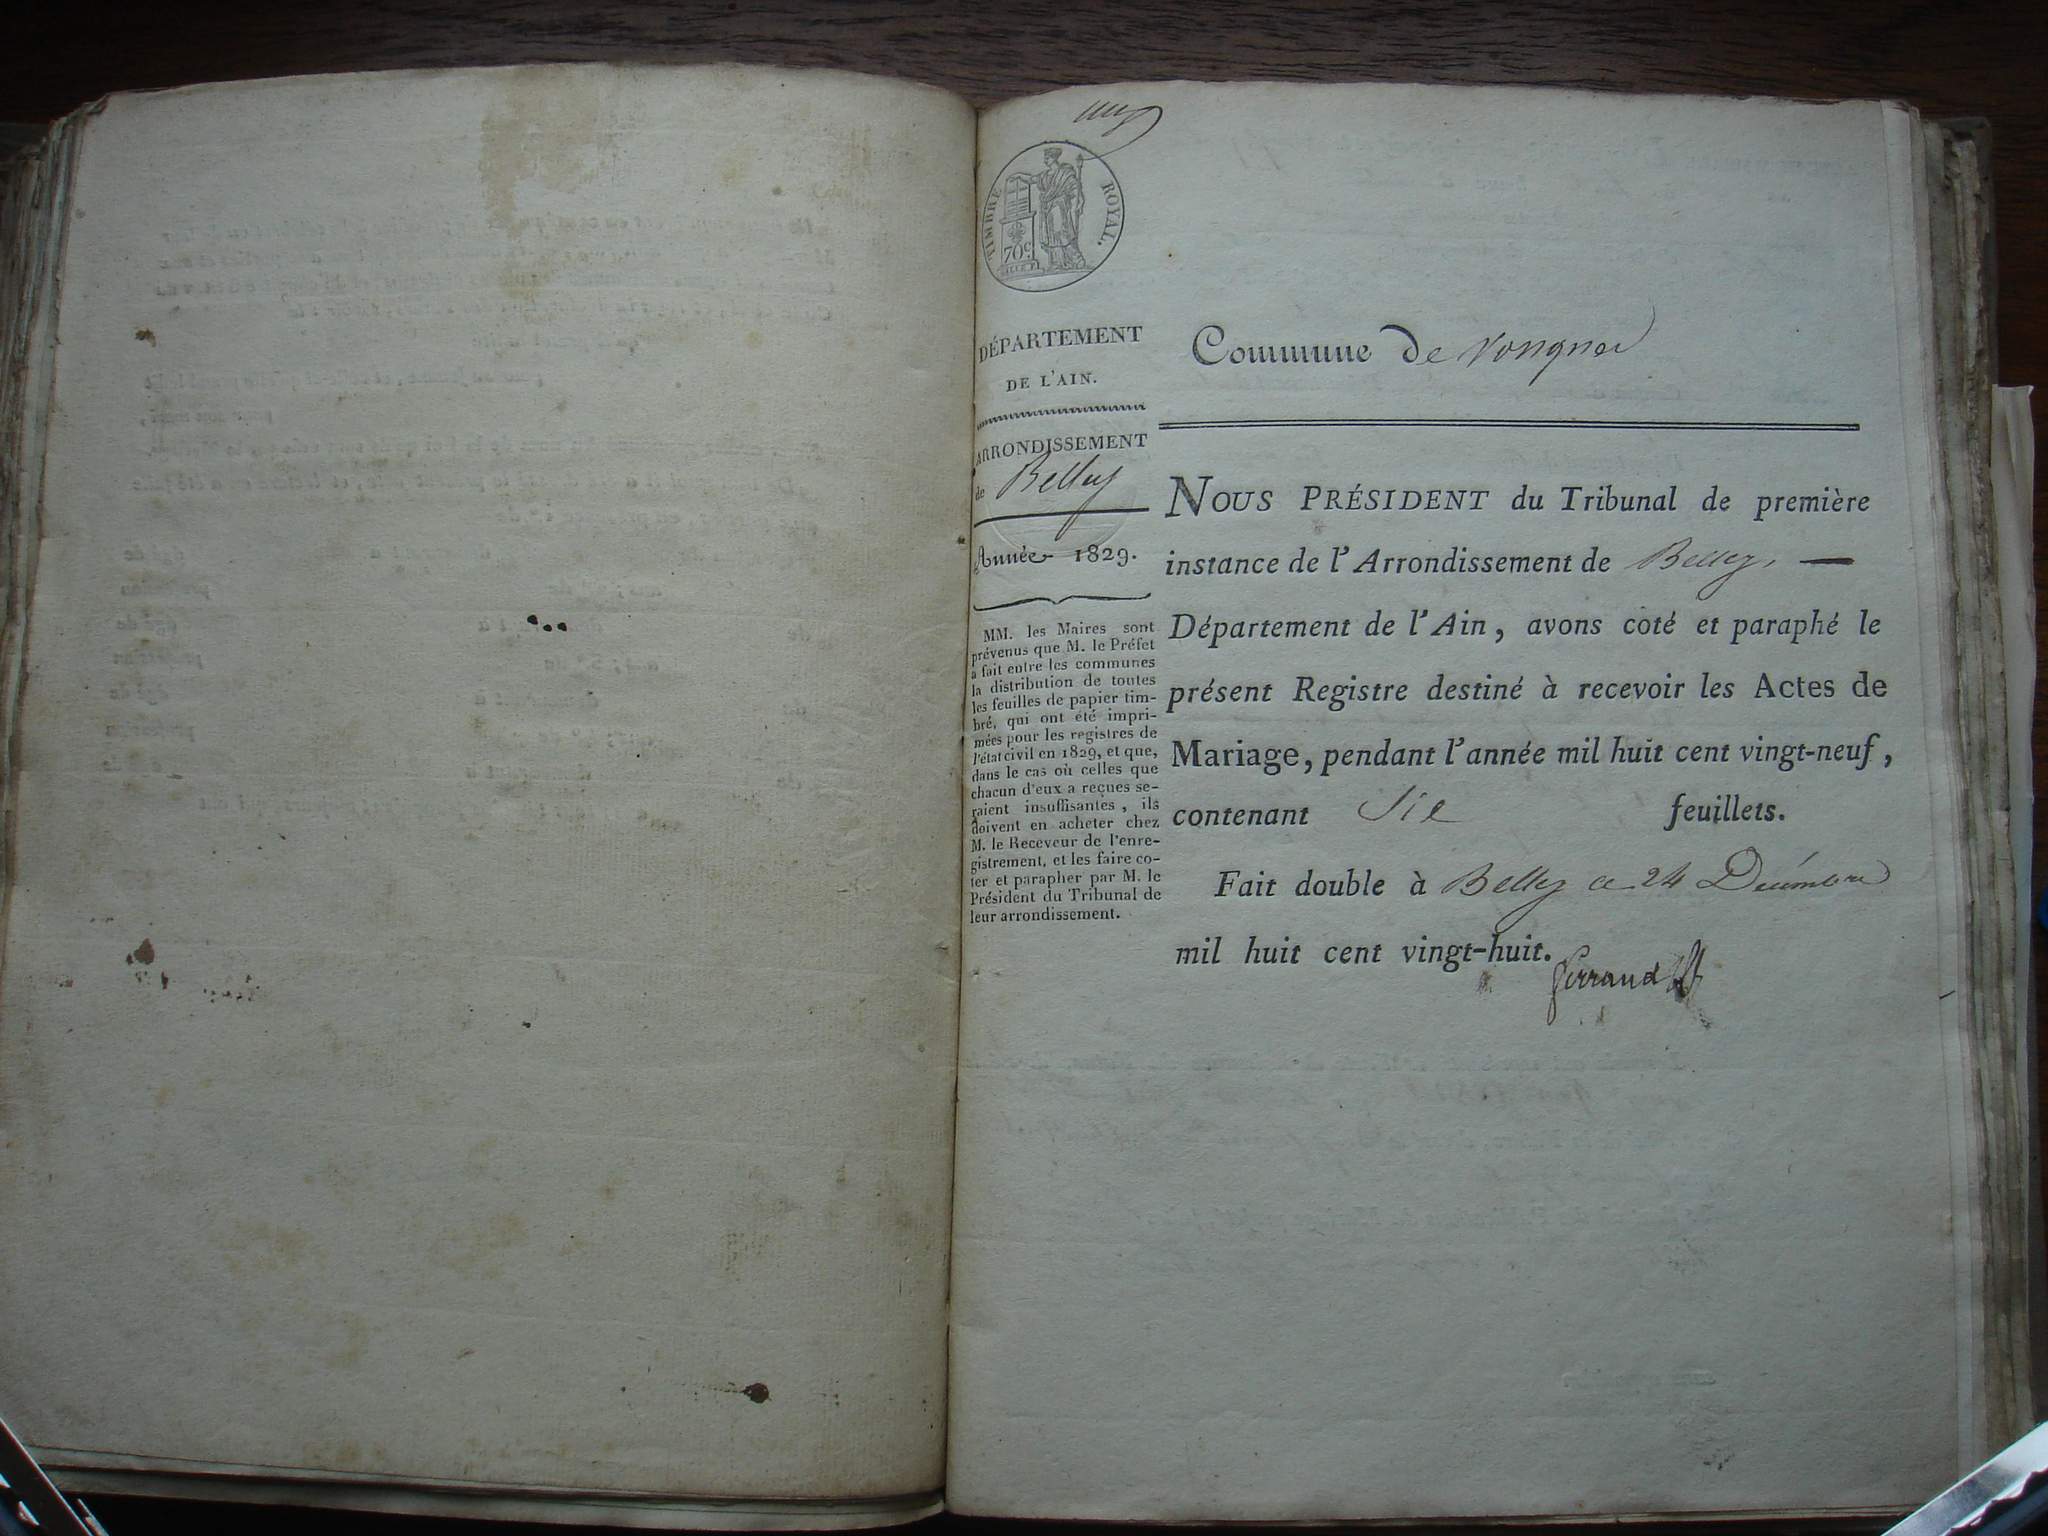 TIMBRE ROYAL.
70c
DÉPARTEMENT
DE L'AIN.
ARRONDISSEMENT
de Belley
Année 1829.
MM. les Maires sont
prévenus que M. le Préfet
a fait entre les communes
la distribution de toutes
les feuilles de papier tim-
bré, qui ont été impri-
mées pour les registres de
l'état civil en 1829, et que,
dans le cas où celles que
chacun d'eux a reçues se-
raient insuffisantes, ils
doivent en acheter chez
M. le Receveur de l'enre-
gistrement, et les faire co-
ter et parapher par M. le
Président du Tribunal de
leur arrondissement.
Commune de Vongnes
NOUS PRÉSIDENT du Tribunal de première
instance de l'Arrondissement de Belley, —
Département de l'Ain, avons coté et paraphé le
présent Registre destiné à recevoir les Actes de
Mariage, pendant l'année mil huit cent vingt-neuf,
contenant Six feuillets.
Fait double à Belley ce 24 Décembre
mil huit cent vingt-huit.